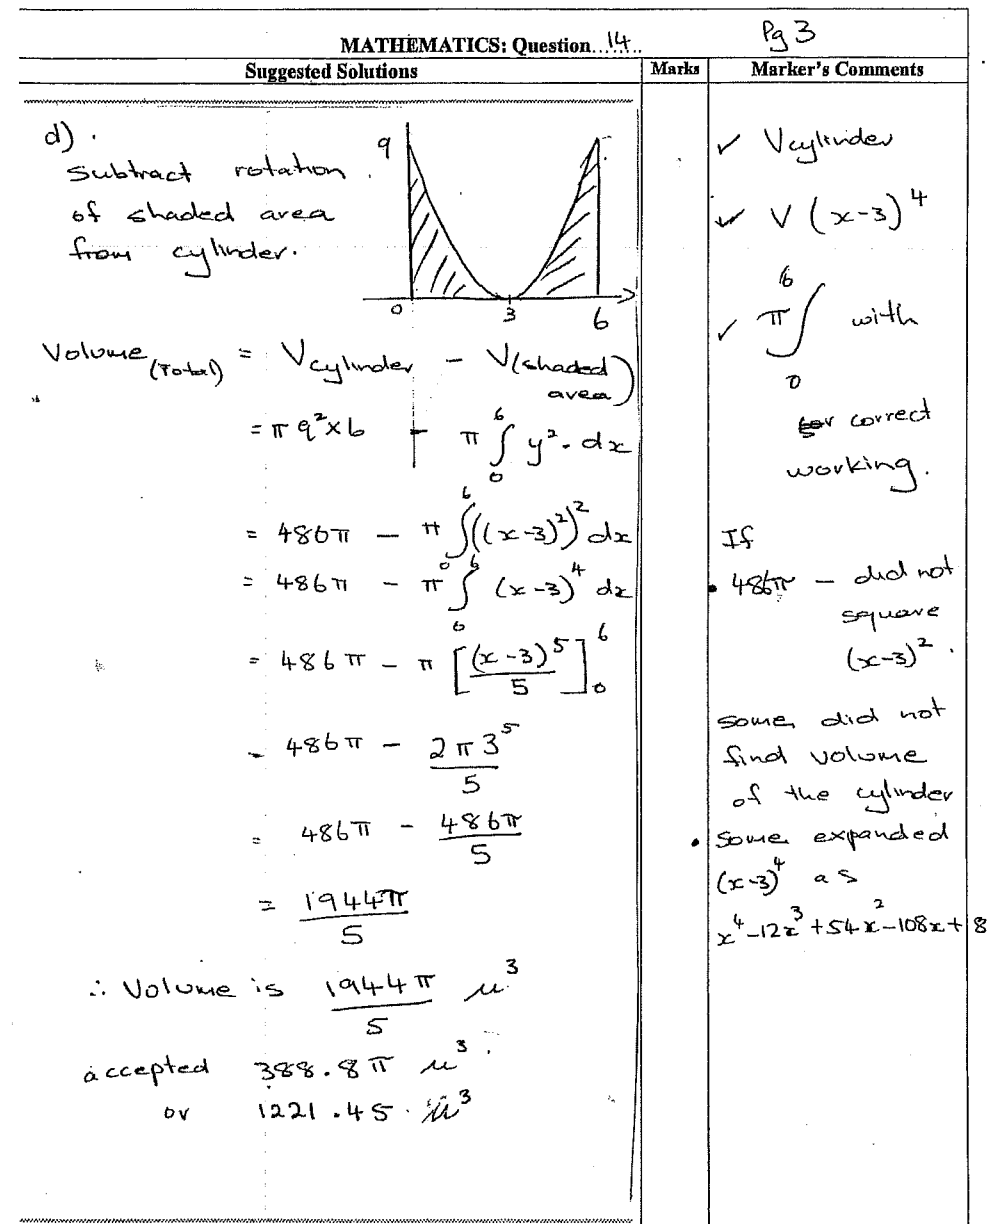 Pg 3
MATHEMATICS: Question...14...
Suggested Solutions
Marks
Marker's Comments
d).
Subtract rotation
of shaded area
from cylinder.
9
0 3 6
Volume (Total) = V cylinder - V (shaded area)
= π 9² × 6 - π ∫₀⁶ y². dx
= 486π - π ∫₀⁶ ((x-3)²)² dx
= 486π - π ∫₀⁶ (x-3)⁴ dx
= 486π - π [(x-3)⁵/5]₀⁶
- 486π - 2π3⁵/5
= 486π - 486π/5
= 1944π/5
∴ Volume is 1944π/5 u³
accepted 388.8π u³.
or 1221.45. u³
✓ Vcylinder
✓ V (x-3)⁴
✓ π ∫₀⁶ with
correct
working.
If
• 486π - did not
square
(x-3)².
some did not
find volume
of the cylinder
• some expanded
(x-3)⁴ as
x⁴-12x³+54x²-108x+8